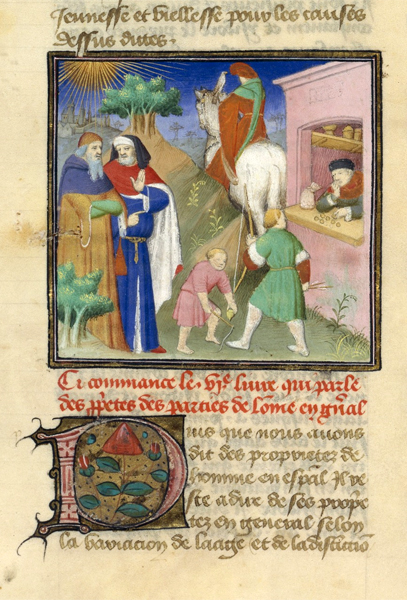 Jeunesse et viellesse pour les causes
dessus dites.
Ci commance le .vje. liure qui parle
des ppetes des parties de lōme en gnal
Puis que nous auons
dit des proprietez de
homme en espal. Il re
ste a dire de ses propre
tez en general selon
la variacion de laage et de la distictiō